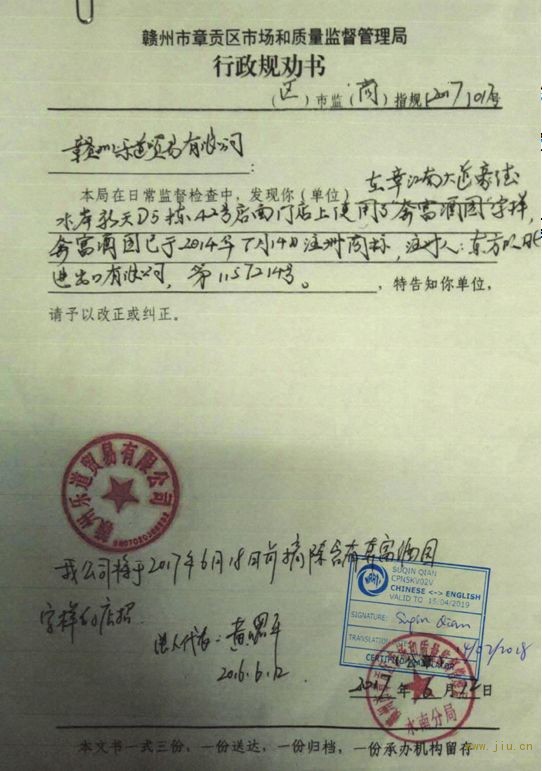 赣州市章贡区市场和质量监督管理局
行政规劝书
（区）市监（商）指规（2017）017号
赣州乐道贸易有限公司：
本局在日常监督检查中，发现你（单位）在章江南大道豪德
水岸新天D5栋42号店南门店上使用了"奔富酒园"字样，
奔富酒园已于2014年7月14日注册商标，注册人：东方
进出口有限公司，第1157214号。，特告知你单位，
请予以改正或纠正。
赣州乐道贸易有限公司
我公司将于2017年6月18日前拆除含有奔富酒园
字样的店招。
法人代表：黄
2016.6.12
SUQIN QIAN
CPNSKV02V
CHINESE <-> ENGLISH
VALID TO 15/04/2019
SIGNATURE: Suqin Qian
TRANSLATION 4/02/2018
NAATI
2017年6月12日
水南分局
本文书一式三份，一份送达，一份归档，一份承办机构留存
www.jiu.cn